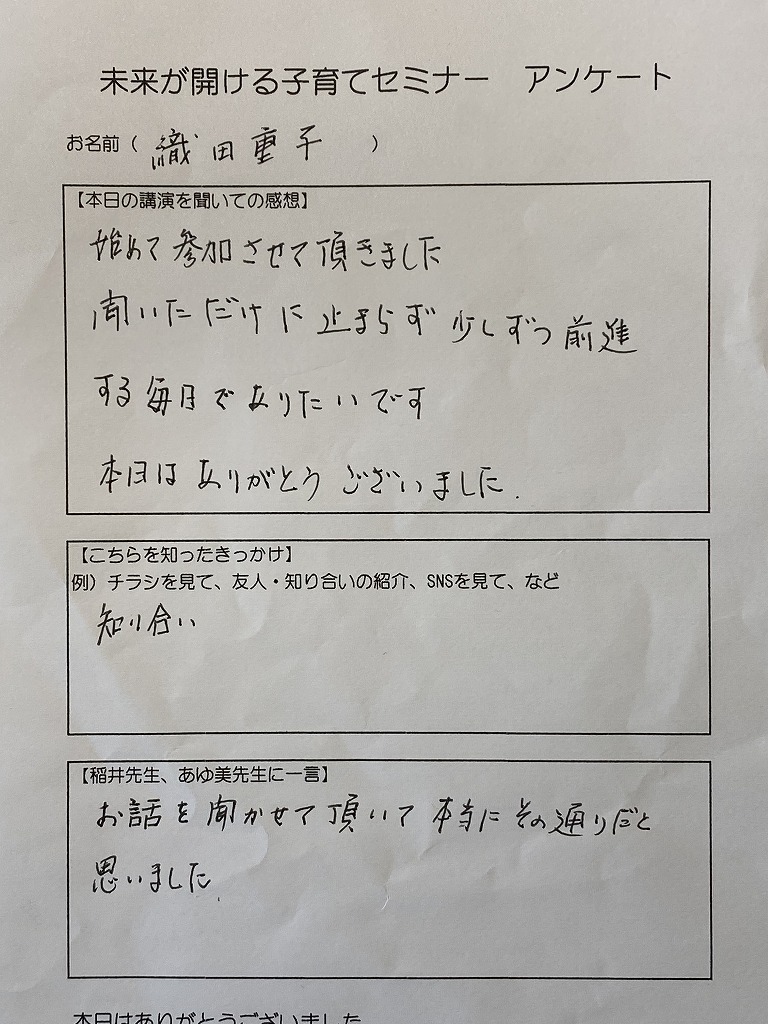 未来が開ける子育てセミナー　アンケート
お名前（ 織田重子 ）
【本日の講演を聞いての感想】
始めて参加させて頂きました
聞いただけに止まらず少しずつ前進
する毎日でありたいです
本日はありがとうございました.
【こちらを知ったきっかけ】
例）チラシを見て、友人・知り合いの紹介、SNSを見て、など
知り合い
【稲井先生、あゆ美先生に一言】
お話を聞かせて頂いて本当にその通りだと
思いました.
本日はありがとうございました